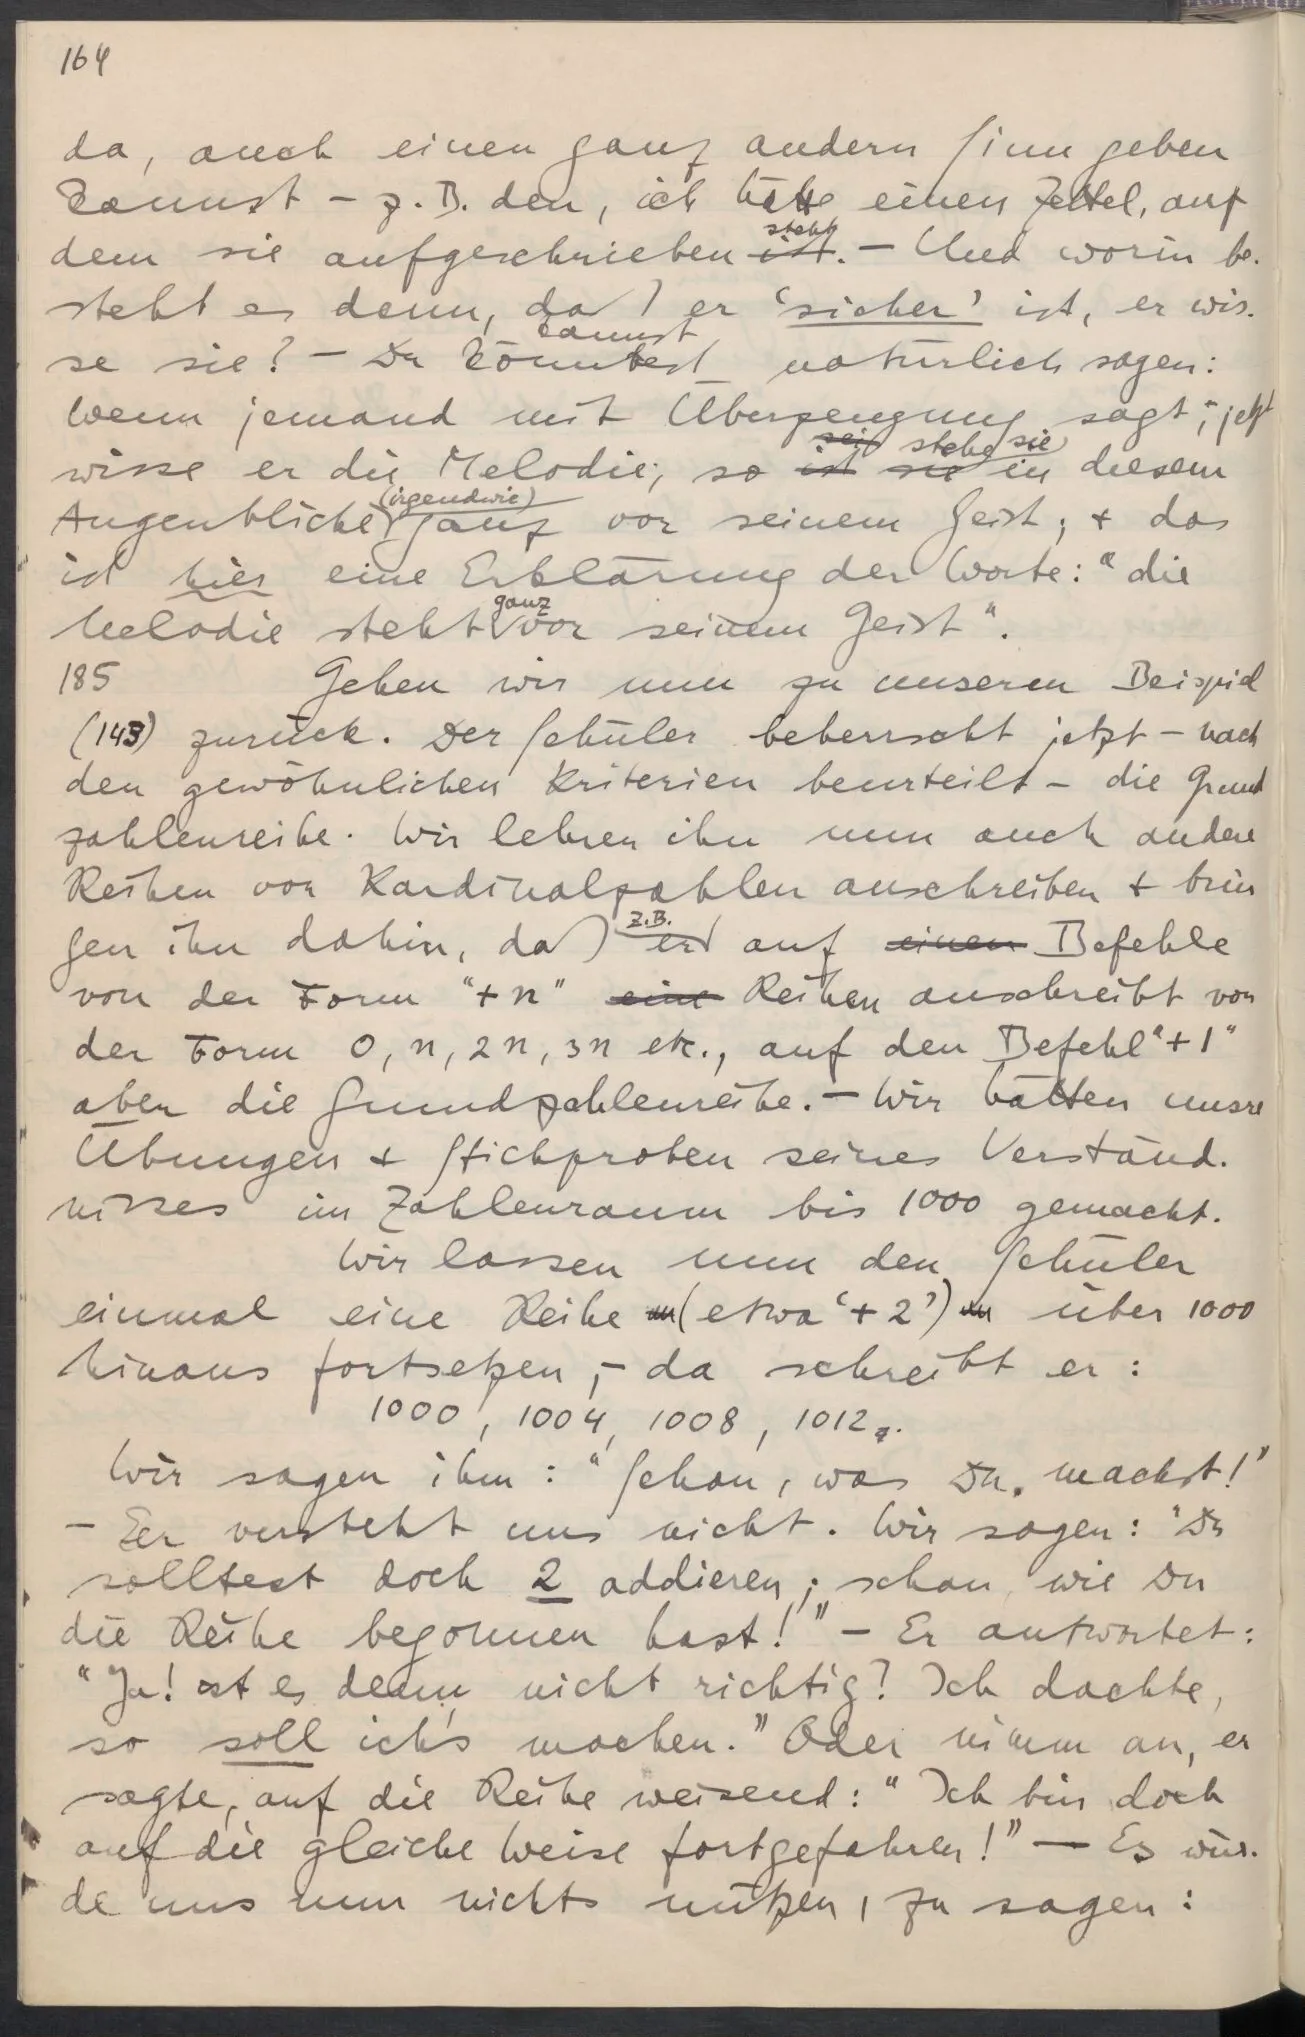 164
da, auch einen ganz andern Sinn geben
kannst – z.B. den, ich hätte einen Zettel, auf
steht
dem sie aufgeschrieben ist. – Und worin be-
steht es denn, daß er ‘sicher’ ist, er wis-
kannst
se sie? – Du könntest natürlich sagen:
Wenn jemand mit Überzeugung sagt, jetzt
sei stehe sie
wisse er die Melodie, so ist sie in diesem
(irgendwie)
Augenblicke ganz vor seinem Geist, + das
ist hier eine Erklärung der Worte: “die
ganz
Melodie steht vor seinem Geist”.
185 Gehen wir nun zu unserem Beispiel
(143) zurück. Der Schüler beherrscht jetzt – nach
den gewöhnlichen Kriterien beurteilt – die Grund
zahlenreihe. Wir lehren ihn nun auch andere
Reihen von Kardinalzahlen anschreiben + brin
z.B.
gen ihn dahin, daß er auf einen Befehle
von der Form “+n” eine Reihen anschreibt von
der Form 0, n, 2n, 3n etc., auf den Befehl “+1”
aber die Grundzahlenreihe. – Wir hätten unsre
Übungen + Stichproben seines Verständ-
nisses im Zahlenraum bis 1000 gemacht.
Wir lassen nun den Schüler
einmal eine Reihe (etwa ‘+2’) über 1000
hinaus fortsetzen, – da schreibt er:
1000, 1004, 1008, 1012.
Wir sagen ihm: “Schau, was Du machst!”
– Er versteht uns nicht. Wir sagen: “Du
solltest doch 2 addieren; schau, wie Du
die Reihe begonnen hast!” – Er antwortet:
“Ja! ist es denn nicht richtig? Ich dachte,
so soll ich's machen.” Oder nimm an, er
sagte, auf die Reihe weisend: “Ich bin doch
auf die gleiche Weise fortgefahren!” – Es wür-
de uns nun nichts nützen, zu sagen: